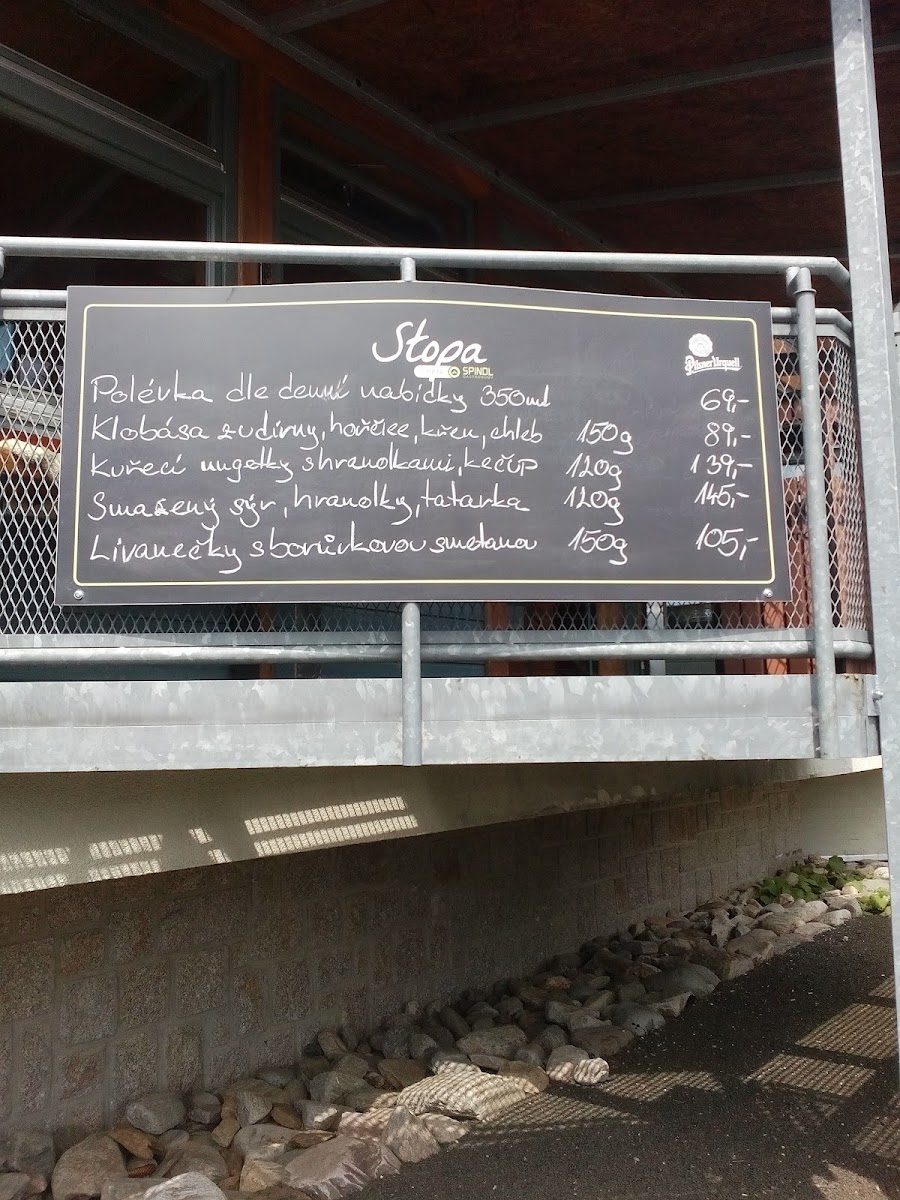 Stopa
SPINDL
Pilsner Urquell
Polévka dle denní nabídky 350ml 69,-
Klobása z udírny, hořčice, křen, chléb 150g 89,-
Kuřecí nugetky s hranolkami, kečup 120g 139,-
Smažený sýr, hranolky, tatarka 120g 145,-
Lívanečky s borůvkovou smetanou 150g 105,-